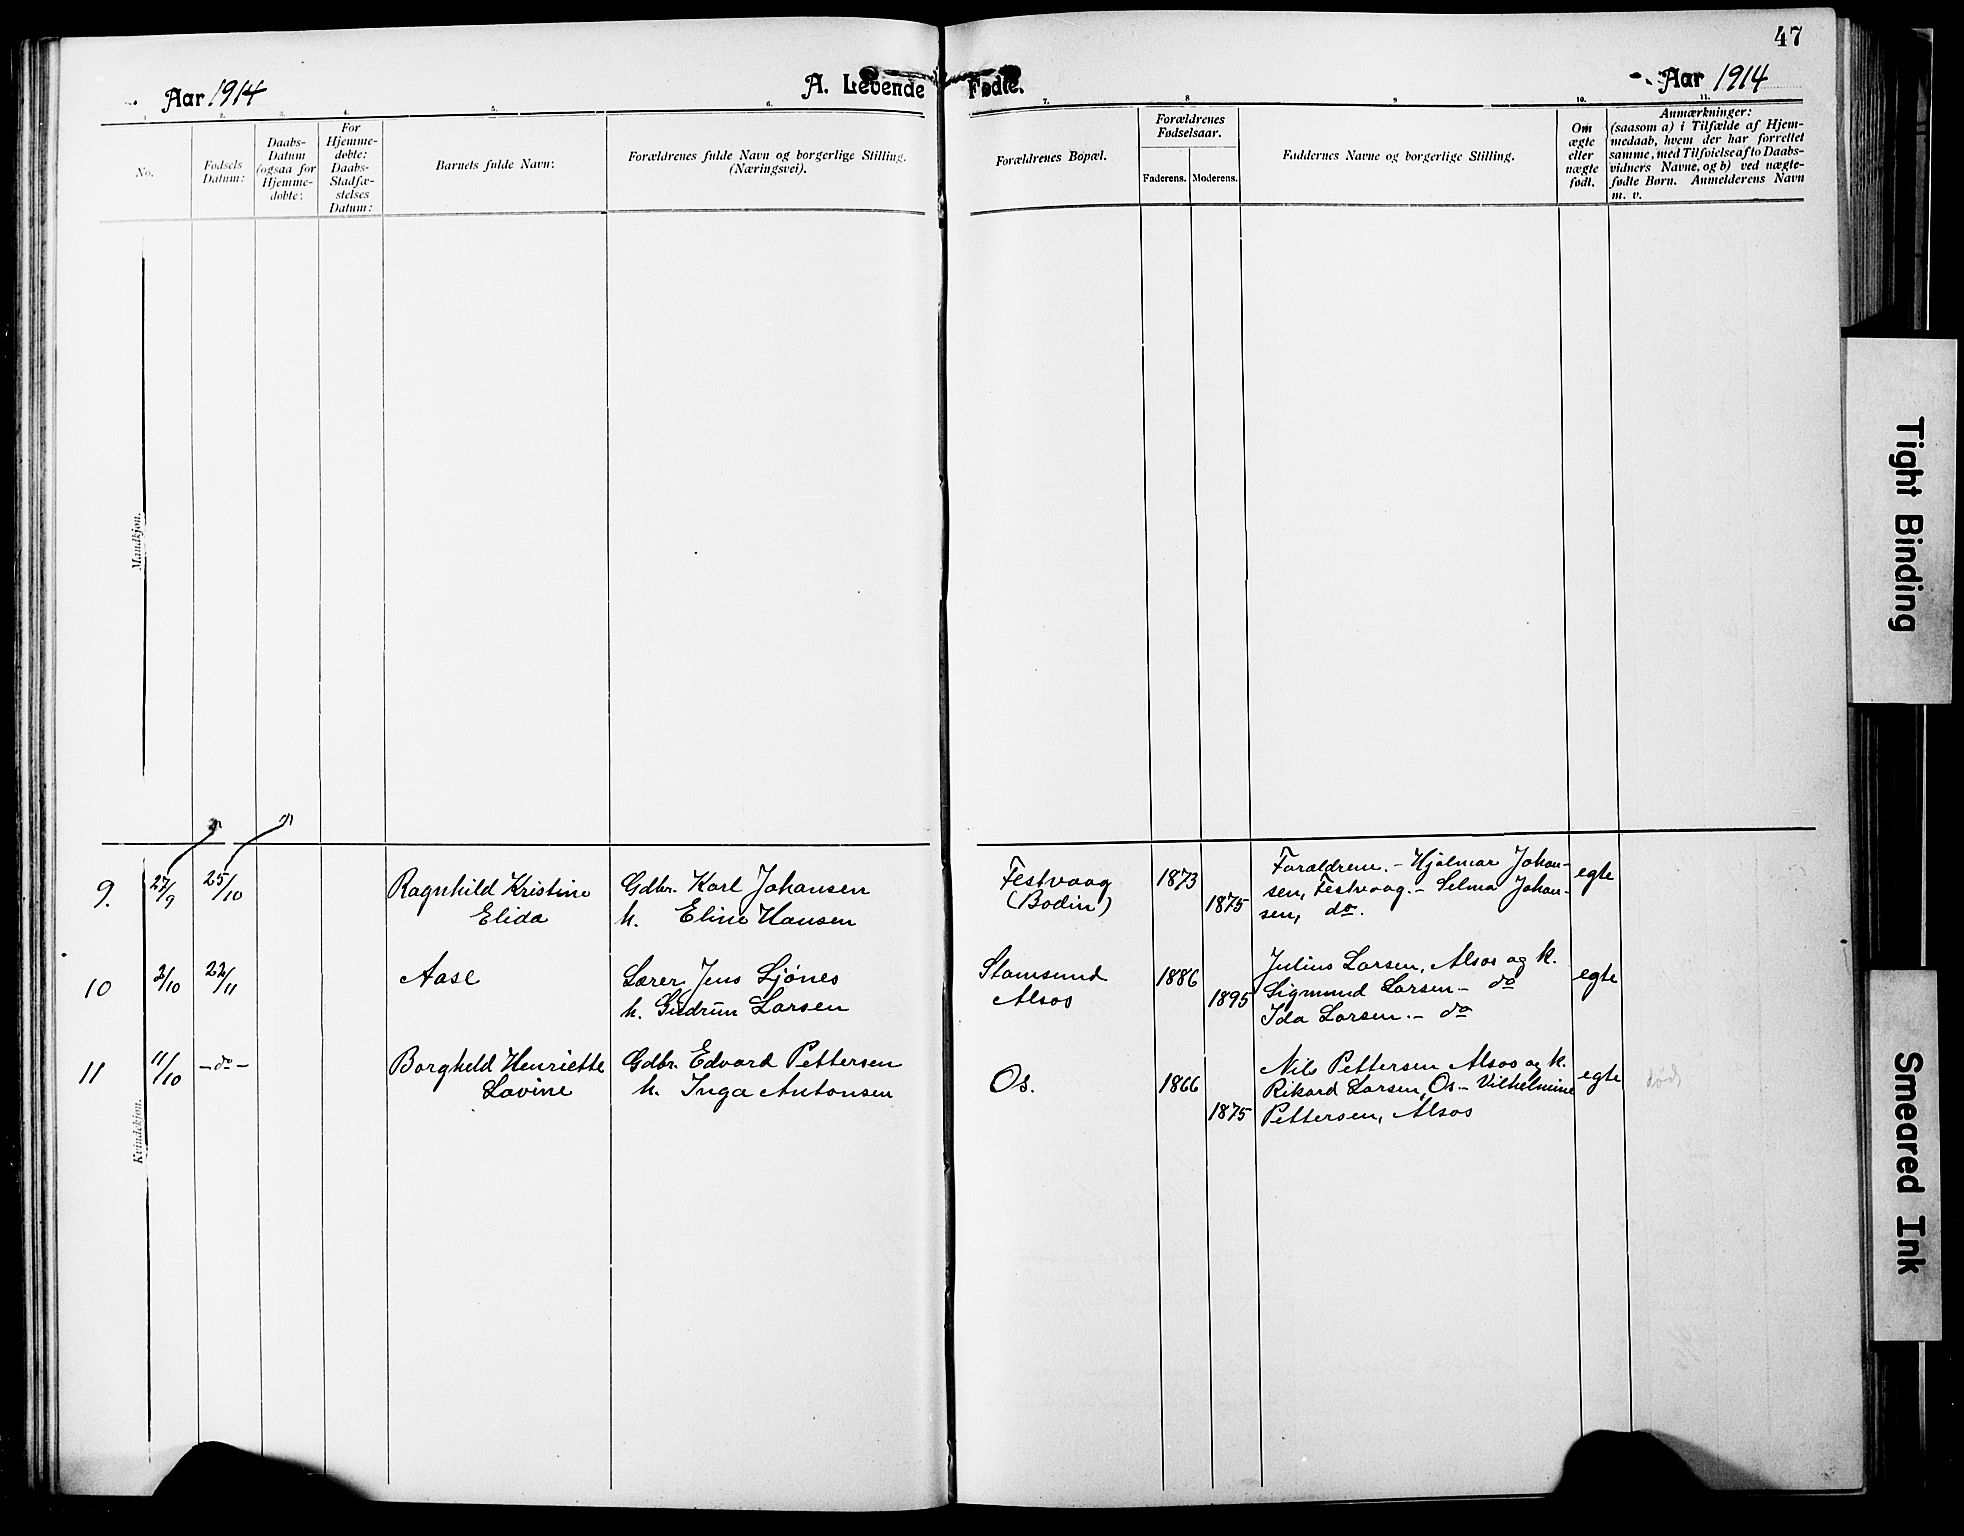 47
Aar 1914
A. Levende Fødte.
Aar 1914
1.
2.
3.
4.
5.
6.
7.
8
9
10.
11.
No.
Fødsels
Datum:
Daabs-
Datum
(ogsaa for
Hjemme-
døbte:
For
Hjemme-
døbte:
Daabs-
Stadfæ-
stelses
Datum:
Barnets fulde Navn:
Forældrenes fulde Navn og borgerlige Stilling.
(Næringsvei).
Forældrenes Bopæl.
Forældrenes
Fødselsaar.
Faderens.
Moderens.
Faddernes Navne og borgerlige Stilling.
Om
ægte
eller
nægte
født.
Anmærkninger:
(saasom a) i Tilfælde af Hjem-
medaab, hvem der har forrettet
samme, med Tilføielse af to Daabs-
vidners Navne, og b) ved nægte-
fødte Børn. Anmelderens Navn
m. v.
Mandkjøn.
Kvindekjøn.
9.
27/9
25/10
Ragnhild Kristine
Elida
Gdbr. Karl Johansen
h. Eline Hansen
Festvaag
(Bodin)
1873
1875
Forældrene. - Hjalmar Johan-
sen, Festvaag. - Selma Johan-
sen, do.
egte
10
2/10
22/11
Aase
Lærer Jens Sjönes
h. Gudrun Larsen
Stamsund
Alsos
1886
1895
Julius Larsen, Alsos og k.
Sigmund Larsen - do
Ida Larsen. - do
egte
11
11/10
- do -
Borghild Henriette
Lovine
Gdbr. Edvard Pettersen
h. Inga Antonsen
Os.
1866
1875
Nils Pettersen Alsos og k.
Rikard Larsen, Os - Vilhelmine
Pettersen, Alsos
egte
død
Tight Binding
Smeared Ink